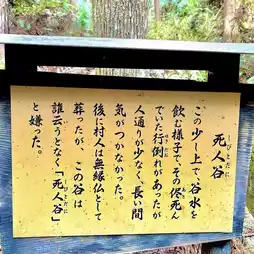 死人谷
しびとだに
この少し上で、谷水を
飲む様子で、その侭死ん
でいた行倒れがあったが
人通りが少なく、長い間
気がつかなかった。
後に村人は無縁仏として
葬ったが、この谷は
誰云うとなく「死人谷」
しびとだに
と嫌った。